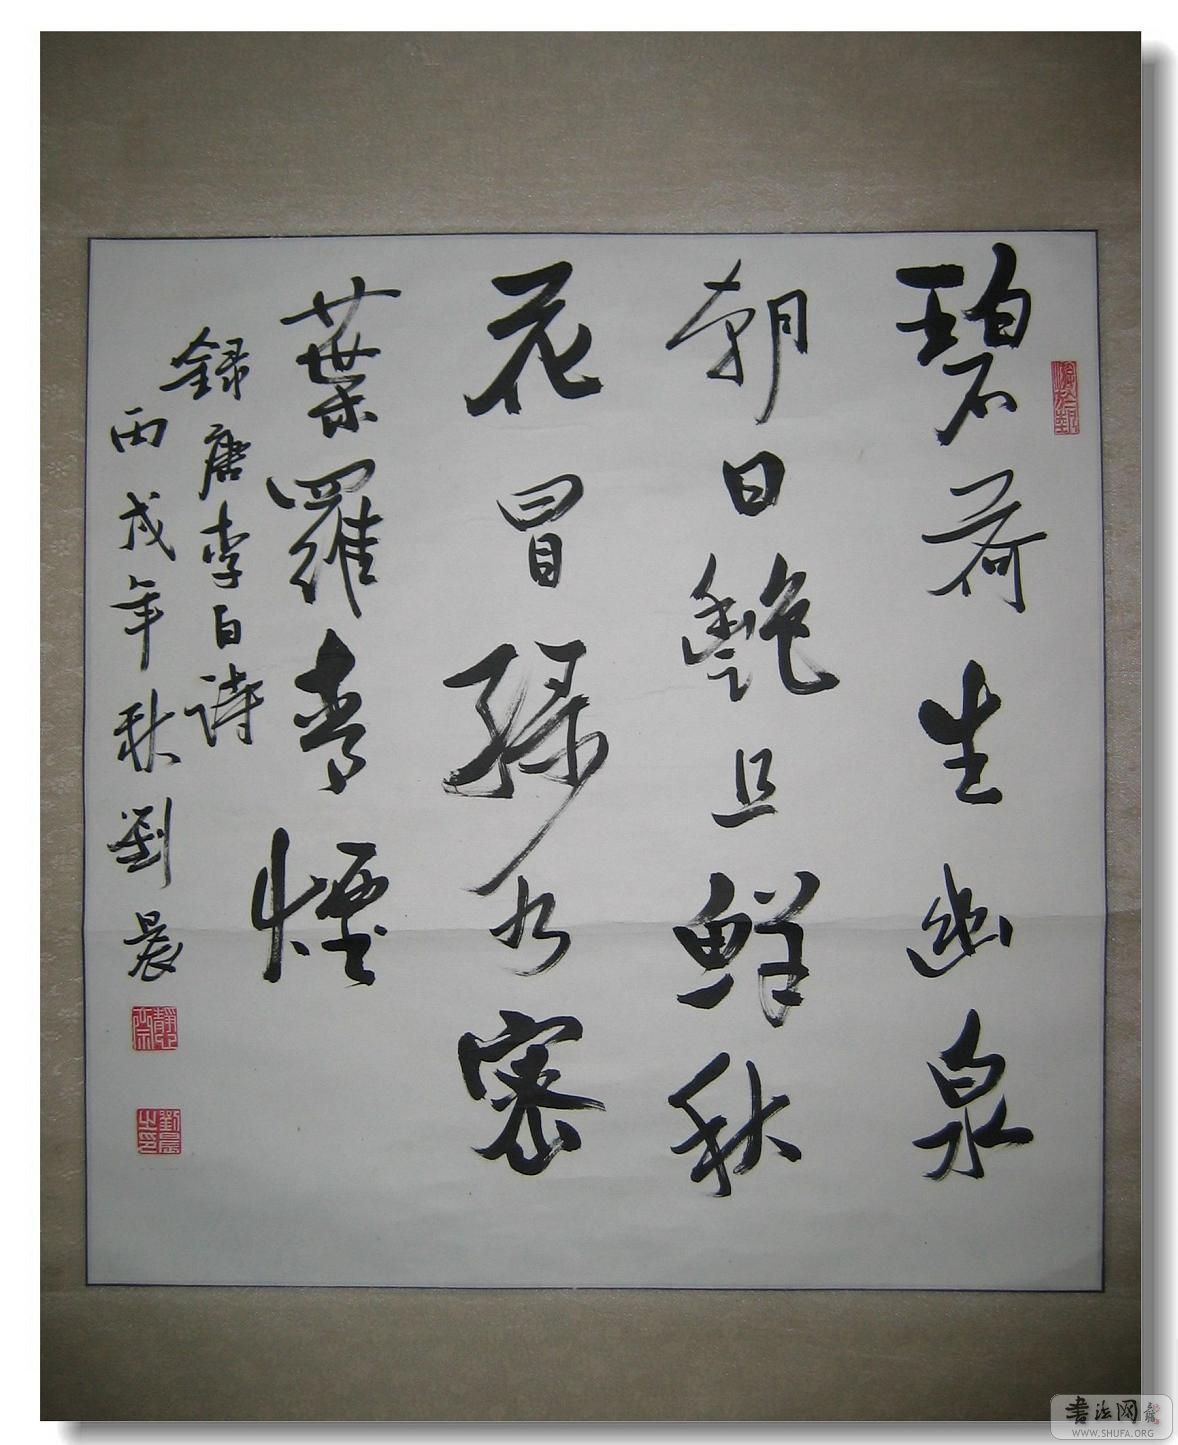 碧荷生幽泉
朝日艷且鮮秋
花冒綠水密
葉羅青煙
錄唐李白詩
丙戌年秋劉晨
劉晨之印
书法网
WWW.SHUFA.ORG